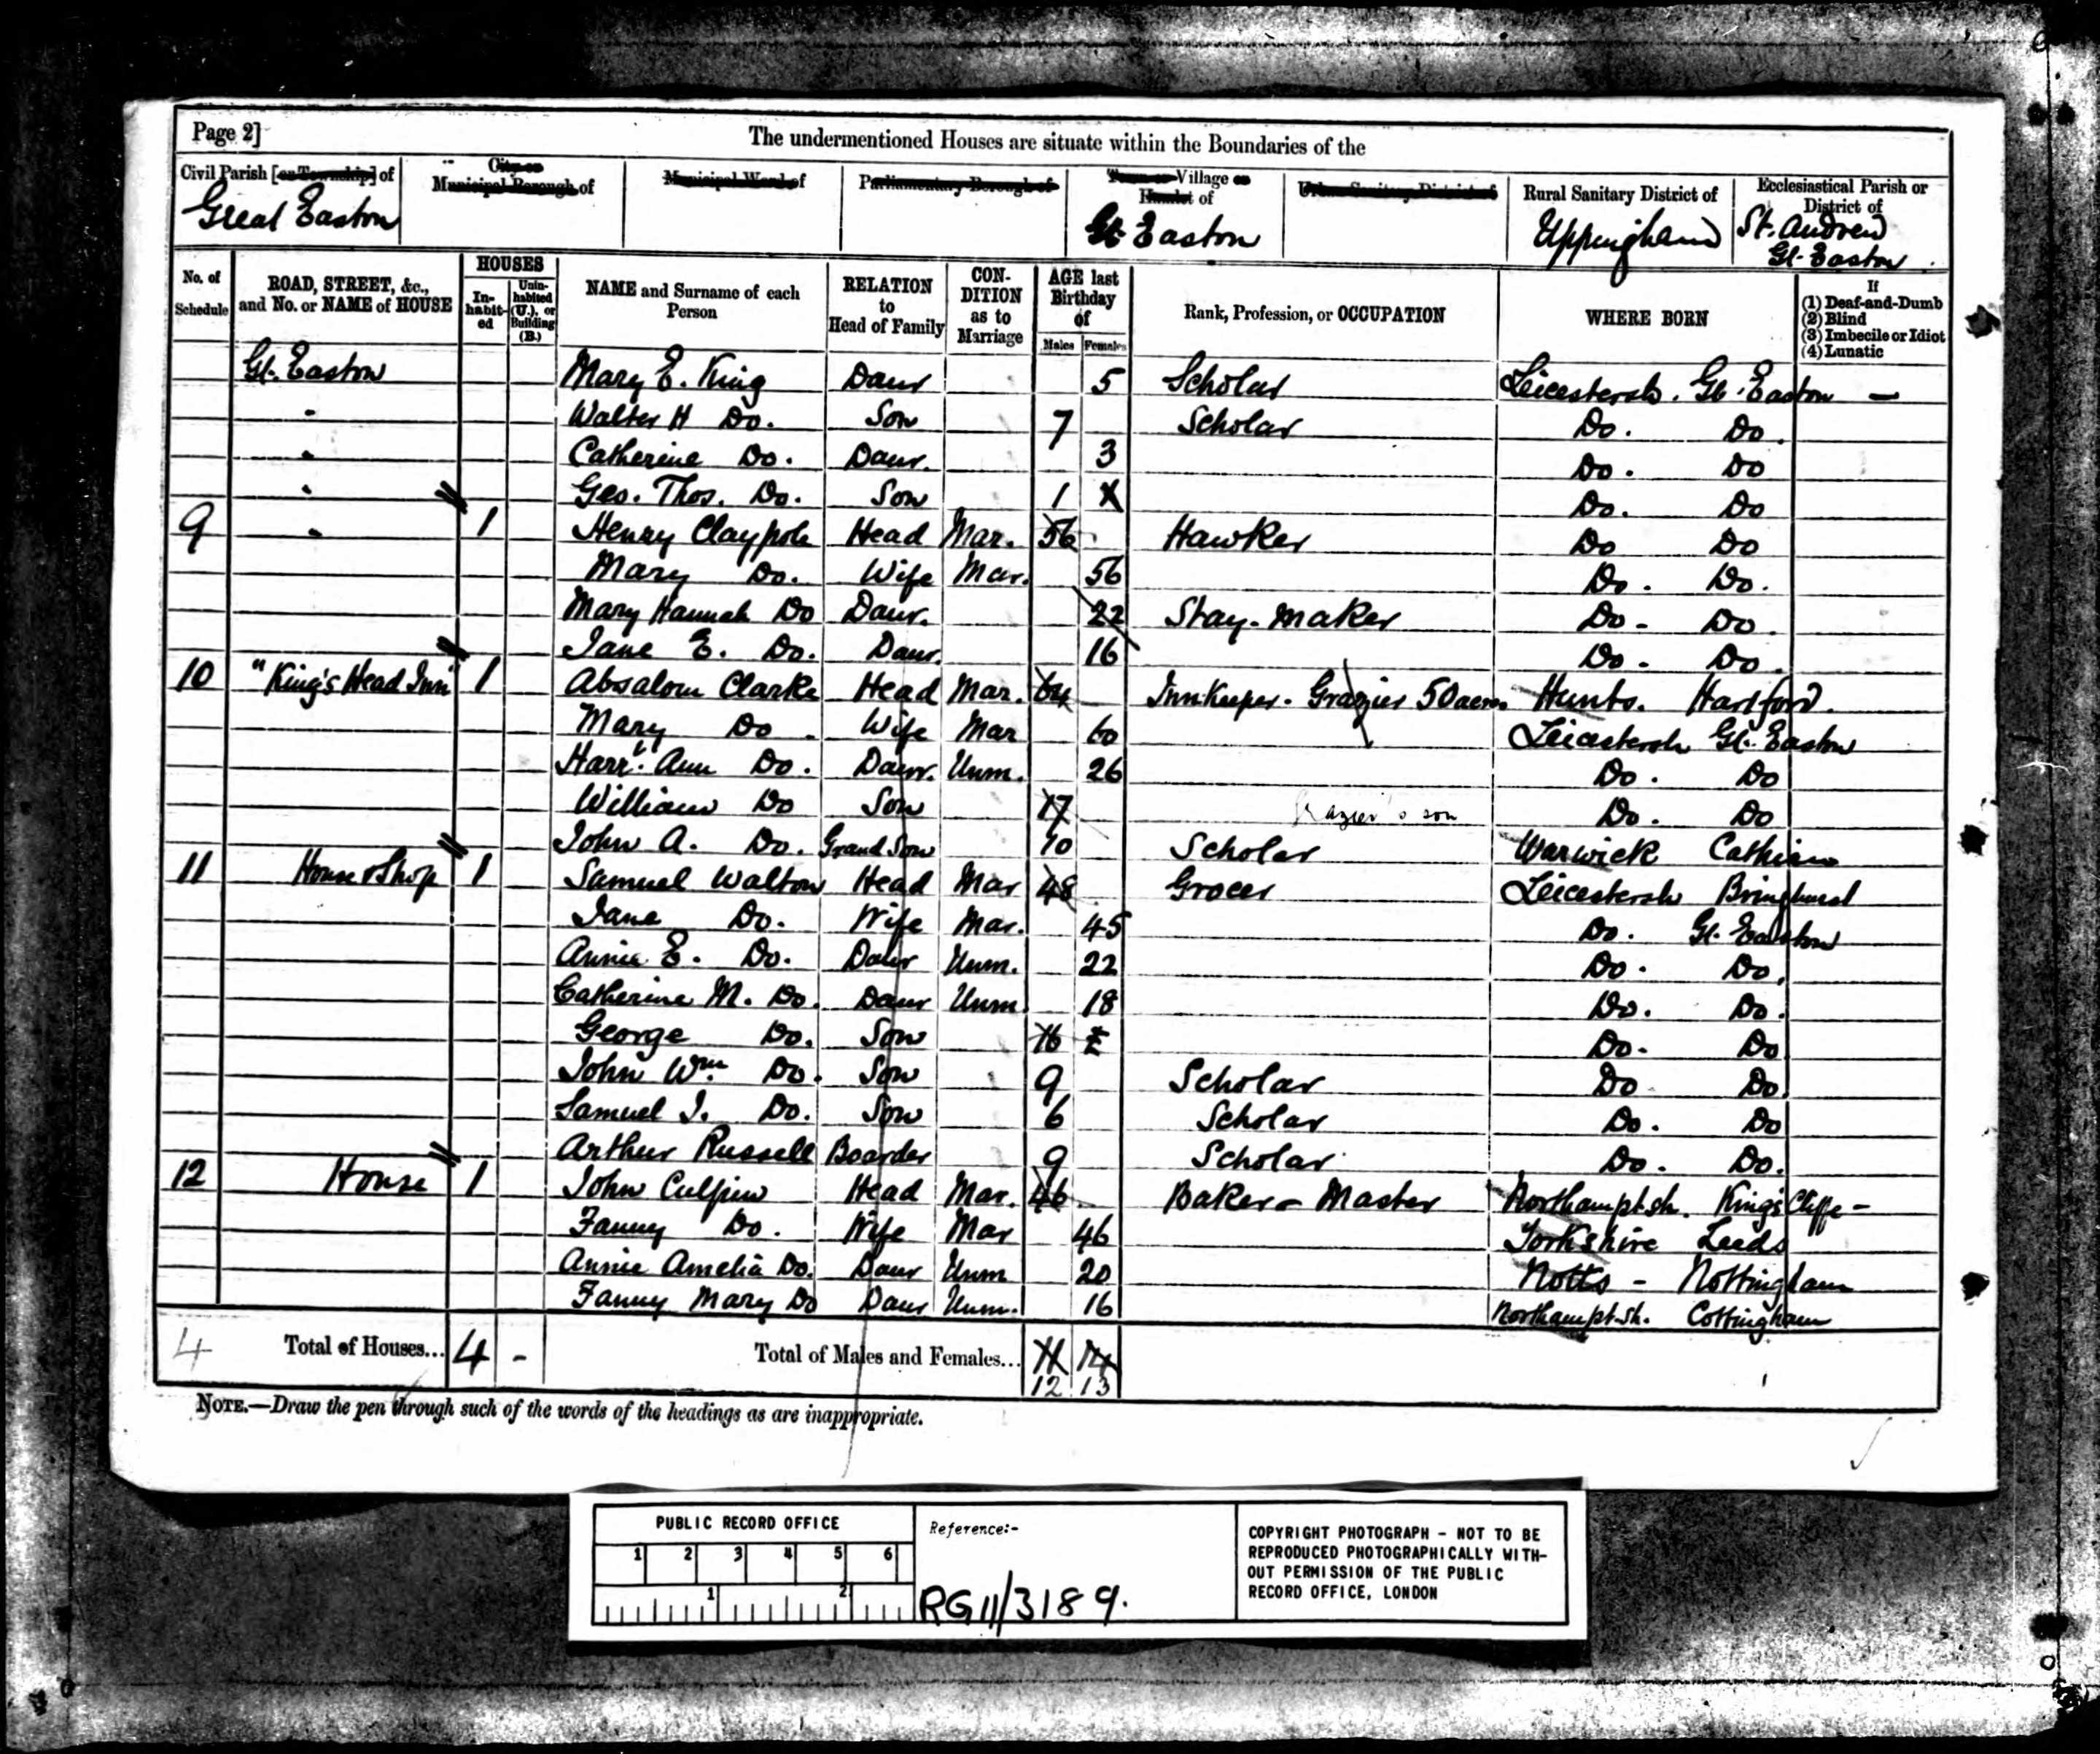 Page 2]
The undermentioned Houses are situate within the Boundaries of the
Civil Parish [or Township] of
Great Easton
City or Municipal Borough of
Municipal Ward of
Parliamentary Borough of
Town or Village or Hamlet of
Gt. Easton
Urban Sanitary District of
Rural Sanitary District of
Uppingham
Ecclesiastical Parish or District of
St. Andrew
Gt. Easton
No. of Schedule
ROAD, STREET, &c., and No. or NAME of HOUSE
HOUSES
In-habit-ed
Unin-habited (U.), or Building (B.)
NAME and Surname of each Person
RELATION to Head of Family
CON-DITION as to Marriage
AGE last Birthday of
Males Females
Rank, Profession, or OCCUPATION
WHERE BORN
If
(1) Deaf-and-Dumb
(2) Blind
(3) Imbecile or Idiot
(4) Lunatic
Gt. Easton Mary E. King Daur 5 Scholar Leicestersh. Gt. Easton —
" Walter H Do. Son 7 Scholar Do. Do.
" Catherine Do. Daur. 3 Do. Do
" Geo. Thos. Do. Son 1 Do. Do
9 " 1 Henry Claypole Head Mar. 56 Hawker Do Do
Mary Do. Wife Mar. 56 Do. Do.
Mary Hannah Do Daur. 22 Stay-maker Do - Do.
Jane E. Do. Daur. 16 Do. Do.
10 "King's Head Inn" 1 Absalom Clarke Head Mar. 64 Innkeeper. Grazier 50 acres Hunts. Hartford.
Mary Do Wife Mar 60 Leicestersh Gt. Easton
Harrt. Ann Do. Daur. Unm. 26 Do. Do
William Do Son 17 Grazier's son Do. Do
John A. Do. Grand Son 10 Scholar Warwick
11 House & Shop 1 Samuel Walton Head Mar 48 Grocer Leicestersh Bringhurst
Jane Do. Wife Mar. 45 Do. Gt. Easton
Annie E. Do. Daur Unm. 22 Do. Do.
Catherine M. Do. Daur Unm. 18 Do. Do.
George Do. Son 16 Do. Do
John Wm. Do. Son 9 Scholar Do Do.
Samuel J. Do. Son 6 Scholar Do. Do
Arthur Russell Boarder 9 Scholar Do. Do.
12 House 1 John Culpin Head Mar. 46 Baker - Master Northamptsh. King's Cliffe -
Fanny Do. Wife Mar 46 Yorkshire Leeds
Annie Amelia Do. Daur Unm 20 Notts - Nottingham
Fanny Mary Do Daur Unm. 16 Northamptsh. Cottingham
4 Total of Houses... 4 - Total of Males and Females... 11 14
12 13
NOTE.—Draw the pen through such of the words of the headings as are inappropriate.
PUBLIC RECORD OFFICE
1 2 3 4 5 6
1 2
Reference:-
RG11/3189.
COPYRIGHT PHOTOGRAPH - NOT TO BE
REPRODUCED PHOTOGRAPHICALLY WITH-
OUT PERMISSION OF THE PUBLIC
RECORD OFFICE, LONDON